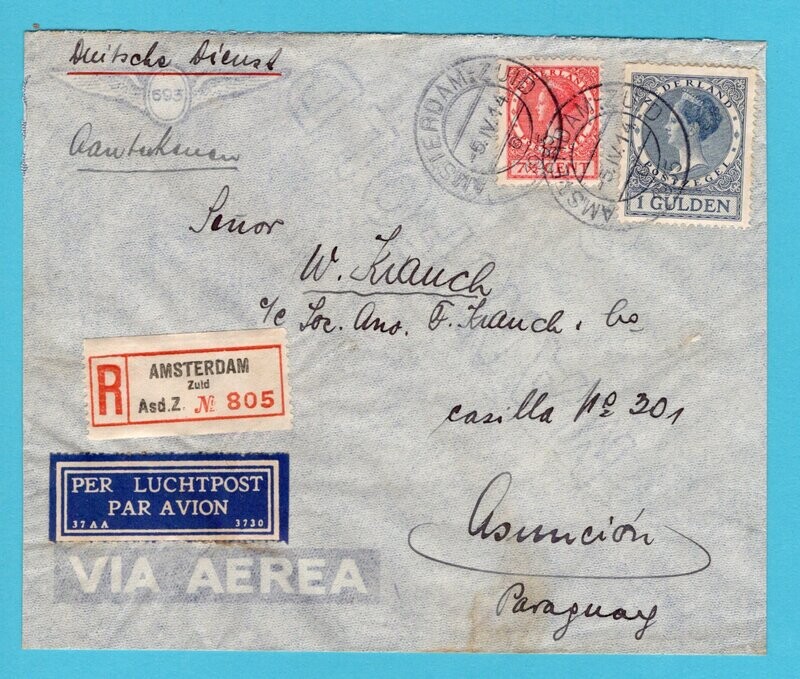 Deutsche Dienst
693
Aantekenen
AMSTERDAM-ZUID
NEDERLAND
7½ CENT
NEDERLAND
POSTZEGEL
1 GULDEN
Señor
W. Krauch
c/c Soc. Ano. F. Krauch & Co
casilla Nº 301
Asunción
Paraguay
R
AMSTERDAM
Zuid
Asd.Z. № 805
PER LUCHTPOST
PAR AVION
37AA 3730
VIA AEREA